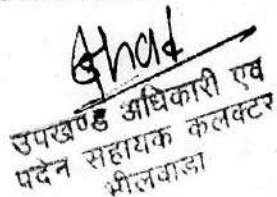 उपखण्ड अधिकारी एवं
पदेन सहायक कलक्टर
भीलवाडा